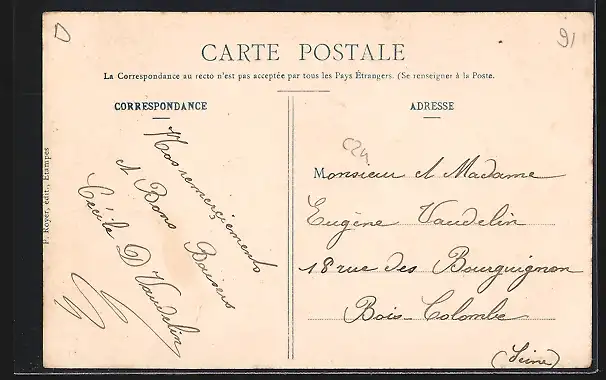 D
91
CARTE POSTALE
La Correspondance au recto n'est pas acceptée par tous les Pays Étrangers. (Se renseigner à la Poste.
CORRESPONDANCE
Nos remerciements
et Bons Baisers
Cécile D Vaudelin
P. Royer, édit., Etampes
ADRESSE
C24
Monsieur et Madame
Eugène Vaudelin
18 rue des Bourguignon
Bois-Colombe
(Seine)